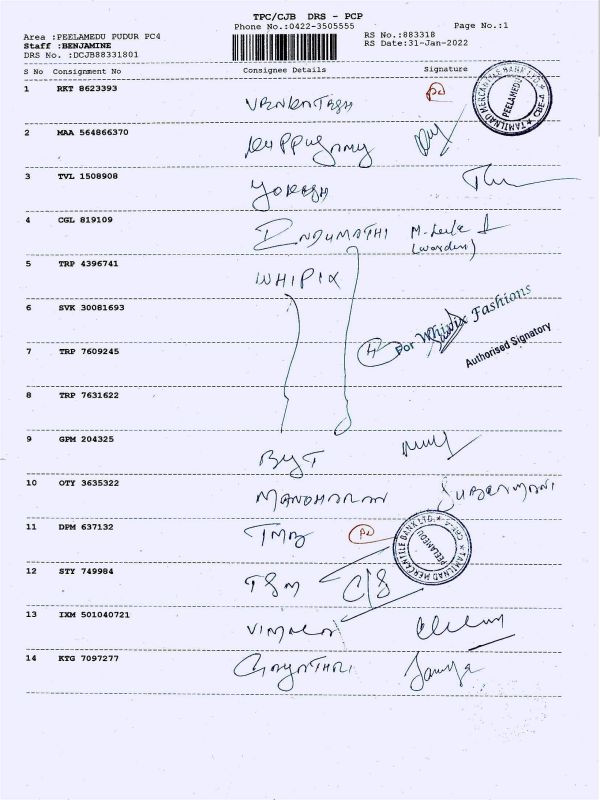 TPC/CJB DRS - PCP
Phone No.:0422-3505555
Page No.:1
Area :PEELAMEDU PUDUR PC4
RS No.:883318
Staff :BENJAMINE
RS Date:31-Jan-2022
DRS No. :DCJB88331801
S No Consignment No Consignee Details Signature
1 RKT 8623393 VENKATESH
TAMILNAD MERCANTILE BANK LTD. CBE-4
PEELAMEDU
2 MAA 564866370
3 TVL 1508908 YOKESH
4 CGL 819109 INDUMATHI
(warden)
5 TRP 4396741 WHIPIX
6 SVK 30081693
For Whivix Fashions
7 TRP 7609245
Authorised Signatory
8 TRP 7631622
9 GPM 204325
10 OTY 3635322 MANOHARAN
11 DPM 637132 TMB
TAMILNAD MERCANTILE BANK LTD. CBE-4
PEELAMEDU
12 STY 749984
13 IXM 501040721
14 KTG 7097277